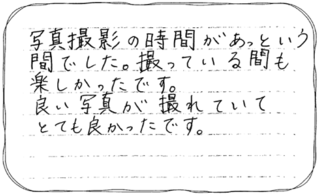 写真撮影の時間があっという
間でした。撮っている間も
楽しかったです。
良い写真が撮れていて
とても良かったです。